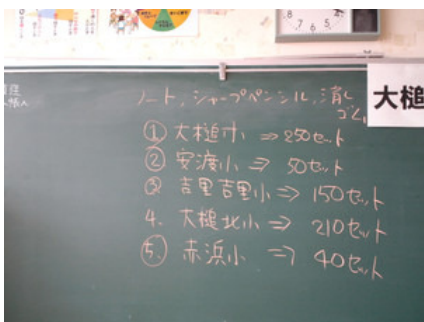 ノート,シャープペンシル,消し
ゴム
大槌
① 大槌小 ⇒ 250セット
② 安渡小 ⇒ 50セット
③ 吉里吉里小 ⇒ 150セット
4. 大槌北小 ⇒ 210セット
⑤. 赤浜小 ⇒ 40セット